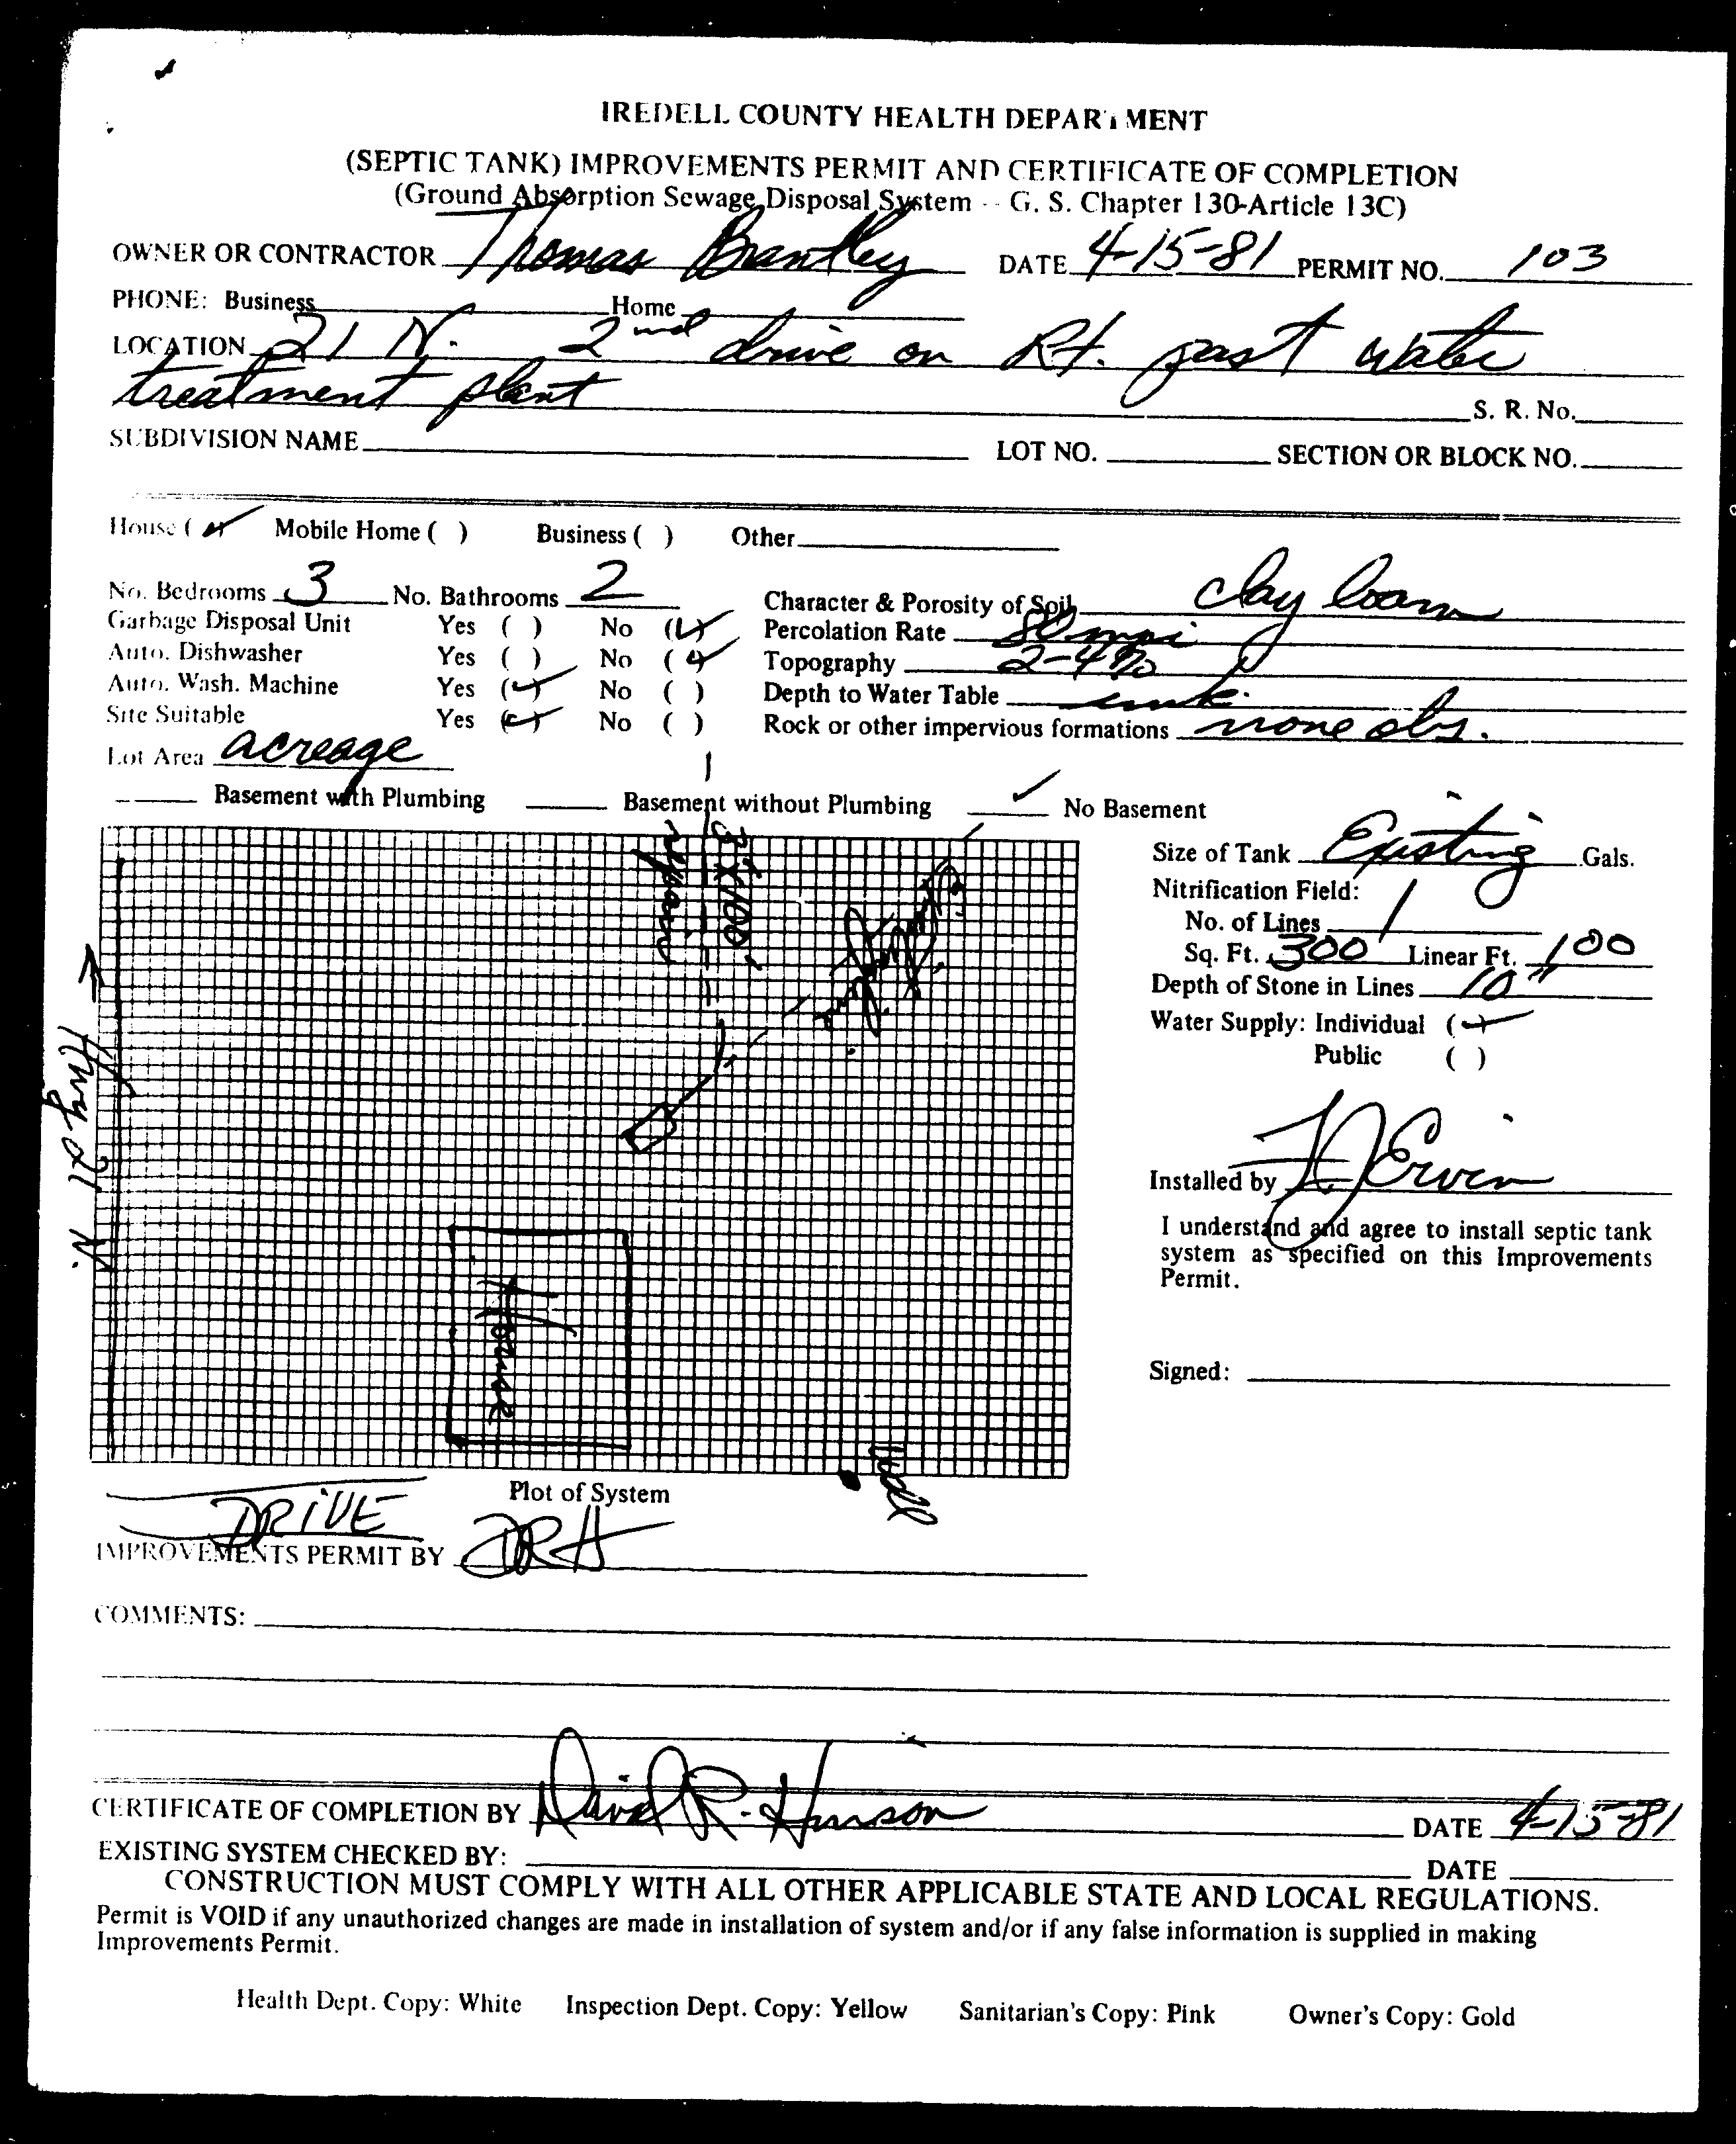 IREDELL COUNTY HEALTH DEPARTMENT
(SEPTIC TANK) IMPROVEMENTS PERMIT AND CERTIFICATE OF COMPLETION
(Ground Absorption Sewage Disposal System -- G. S. Chapter 130-Article 13C)
OWNER OR CONTRACTOR Thomas Brantley DATE 4-15-81 PERMIT NO. 103
PHONE: Business Home
LOCATION 21 N. 2nd drive on Rt. past water
treatment plant S. R. No.
SUBDIVISION NAME LOT NO. SECTION OR BLOCK NO.
House (✓) Mobile Home ( ) Business ( ) Other
No. Bedrooms 3 No. Bathrooms 2 Character & Porosity of Soil clay loam
Garbage Disposal Unit Yes ( ) No (✓) Percolation Rate 80 mpi
Auto. Dishwasher Yes ( ) No (✓) Topography 2-4%
Auto. Wash. Machine Yes (✓) No ( ) Depth to Water Table unk.
Site Suitable Yes (✓) No ( ) Rock or other impervious formations none obs.
Lot Area acreage
Basement with Plumbing Basement without Plumbing ✓ No Basement
Size of Tank Existing Gals.
Nitrification Field:
No. of Lines 1
Sq. Ft. 300 Linear Ft. 100
Depth of Stone in Lines 10"
Water Supply: Individual (✓)
Public ( )
3' X 100'
repair
Hwy 21 N.
House
Well
Installed by Ervin
I understand and agree to install septic tank
system as specified on this Improvements
Permit.
Signed:
Plot of System
DRIVE
IMPROVEMENTS PERMIT BY DRH
COMMENTS:
CERTIFICATE OF COMPLETION BY David R. Hinson DATE 4-15-81
EXISTING SYSTEM CHECKED BY: DATE
CONSTRUCTION MUST COMPLY WITH ALL OTHER APPLICABLE STATE AND LOCAL REGULATIONS.
Permit is VOID if any unauthorized changes are made in installation of system and/or if any false information is supplied in making
Improvements Permit.
Health Dept. Copy: White Inspection Dept. Copy: Yellow Sanitarian's Copy: Pink Owner's Copy: Gold